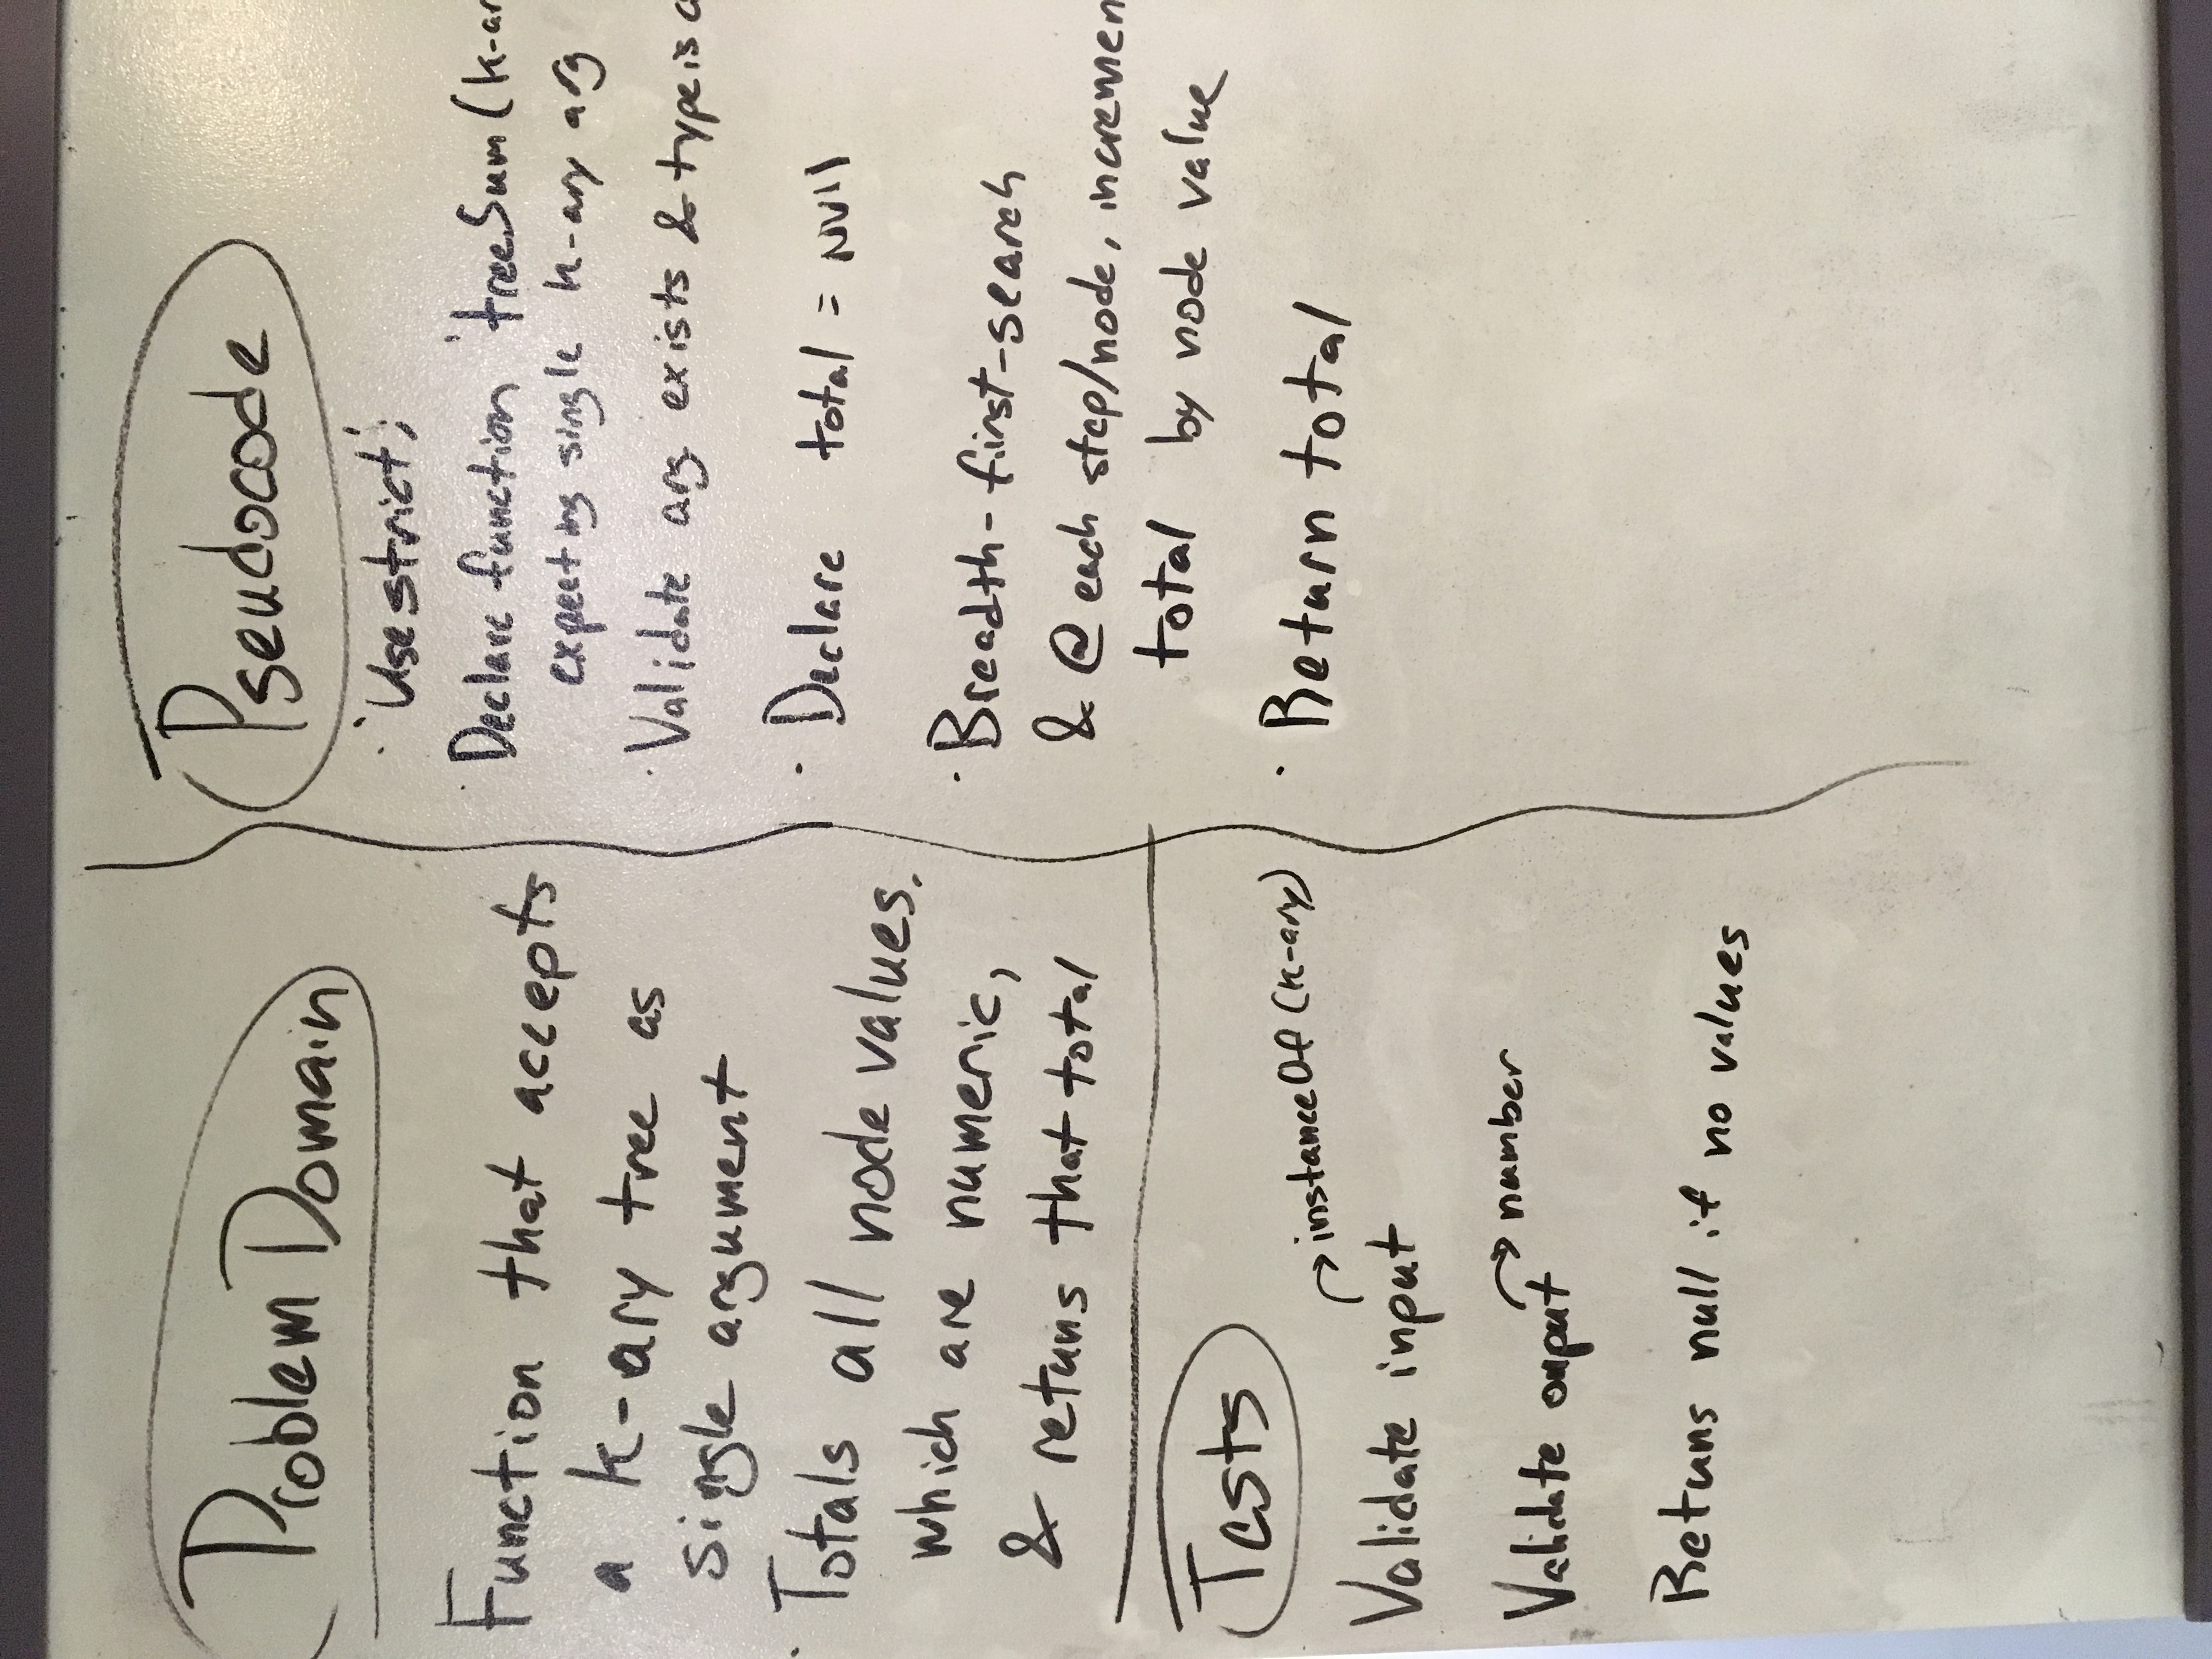 Problem Domain
Function that accepts
a k-ary tree as
single argument
· Totals all node values.
which are numeric,
& retuns that total
Tests
instanceOf (k-ary)
Validate input
number
Validate onput
Retuns null if no values
Pseudocode
· 'Use strict';
· Declare function 'treeSum (k-ar
expecting single k-ary arg
· Validate arg exists & type is
· Declare total = NUll
· Breadth-first-search
& @ each step/node, incremen
total by node value
· Return total